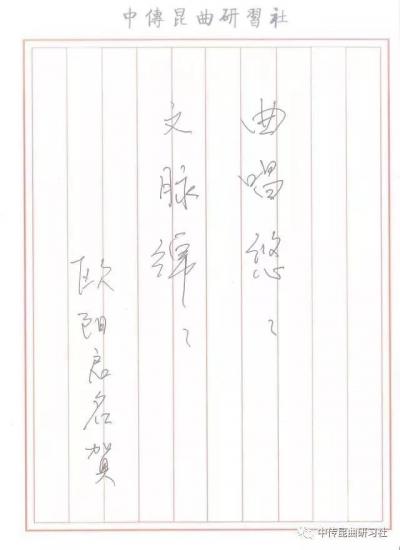 中傳昆曲研習社
曲唱悠〻
文脉繹〻
欧阳启名賀
中传昆曲研习社